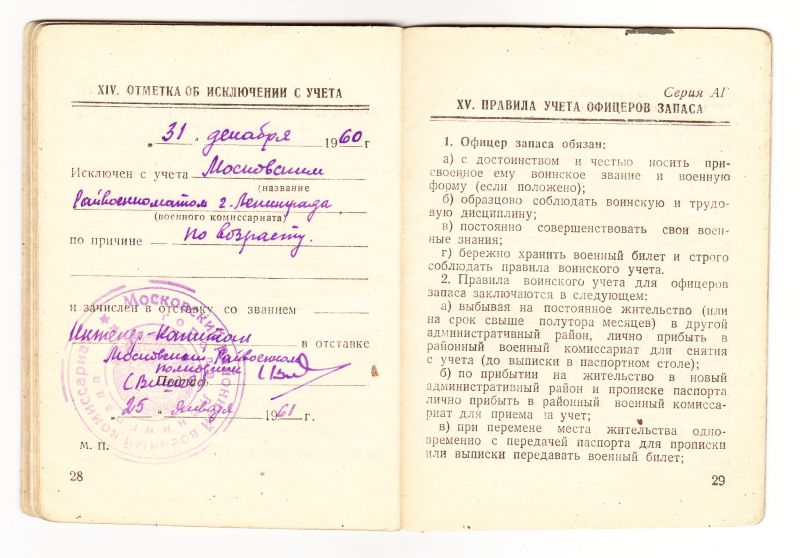 XIV. ОТМЕТКА ОБ ИСКЛЮЧЕНИИ С УЧЕТА
„31“ декабря 1960 г
Исключен с учета Московским
(название
Райвоенкоматом г. Ленинграда
(военного комиссариата)
по причине по возрасту.
и зачислен в отставку со званием
Инженер-Капитан в отставке
Московский Райвоенком
полковник
Подпись
25 января 1961 г.
М. П.
28
Серия АГ
XV. ПРАВИЛА УЧЕТА ОФИЦЕРОВ ЗАПАСА
1. Офицер запаса обязан:
а) с достоинством и честью носить при-
своенное ему воинское звание и военную
форму (если положено);
б) образцово соблюдать воинскую и трудо-
вую дисциплину;
в) постоянно совершенствовать свои воен-
ные знания;
г) бережно хранить военный билет и строго
соблюдать правила воинского учета.
2. Правила воинского учета для офицеров
запаса заключаются в следующем:
а) выбывая на постоянное жительство (или
на срок свыше полутора месяцев) в другой
административный район, лично прибыть в
районный военный комиссариат для снятия
с учета (до выписки в паспортном столе);
б) по прибытии на жительство в новый
административный район и прописке паспорта
лично прибыть в районный военный комисса-
риат для приема на учет;
в) при перемене места жительства одно-
временно с передачей паспорта для прописки
или выписки передавать военный билет;
29